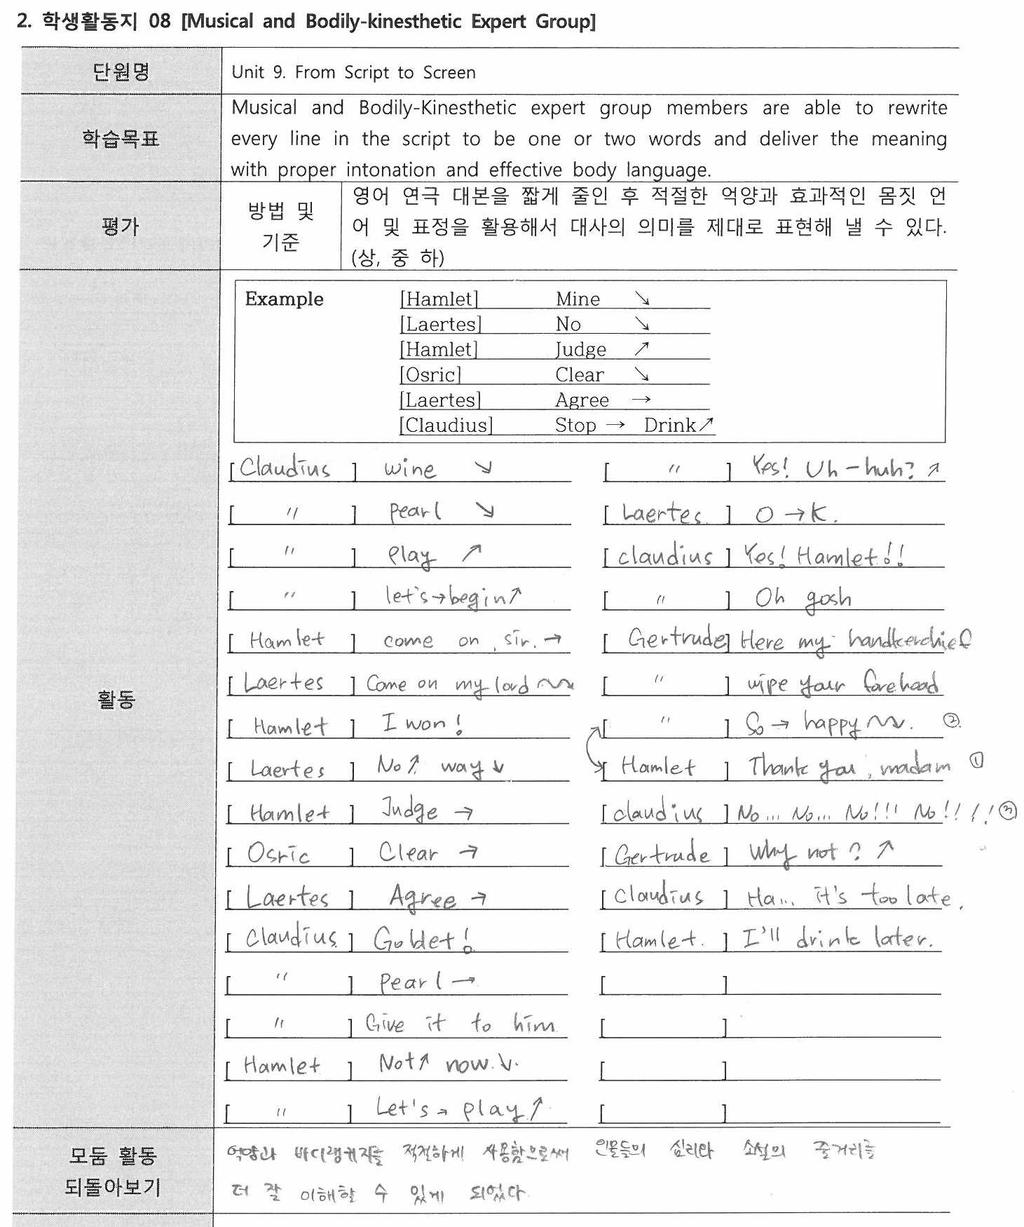 2. 학생활동지 08 [Musical and Bodily-kinesthetic Expert Group]
단원명 Unit 9. From Script to Screen
학습목표
Musical and Bodily-Kinesthetic expert group members are able to rewrite
every line in the script to be one or two words and deliver the meaning
with proper intonation and effective body language.
평가
방법 및
기준
영어 연극 대본을 짧게 줄인 후 적절한 억양과 효과적인 몸짓 언
어 및 표정을 활용해서 대사의 의미를 제대로 표현해 낼 수 있다.
(상, 중 하)
활동
Example [Hamlet] Mine ↘
[Laertes] No ↘
[Hamlet] Judge ↗
[Osric] Clear ↘
[Laertes] Agree →
[Claudius] Stop → Drink↗
[Claudius] wine ↘
[ 〃 ] pearl ↘
[ 〃 ] play ↗
[ 〃 ] let's→begin↗
[Hamlet] come on, sir. →
[Laertes] Come on my lord ~~
[Hamlet] I won!
[Laertes] No↑ way↓
[Hamlet] Judge →
[Osric] Clear →
[Laertes] Agree →
[Claudius] Goblet!
[ 〃 ] pearl →
[ 〃 ] Give it to him
[Hamlet] Not↗ now.↘.
[ 〃 ] Let's → play↗
[ 〃 ] Yes! Uh-huh? ↗
[Laertes.] O → K.
[claudius] Yes! Hamlet!!
[ 〃 ] Oh gosh
[Gertrude] Here my handkerchief
[ 〃 ] wipe your forehead
[ 〃 ] So → happy ~~. ②
[Hamlet] Thank you, madam ①
[claudius] No... No... No!!! No!!!! ③
[Gertrude] Why not? ↗
[Claudius] Ha... it's too late.
[Hamlet.] I'll drink later.
[ ]
[ ]
[ ]
[ ]
모둠 활동
되돌아보기
억양과 바디랭귀지를 적절하게 사용함으로써 인물들의 심리와 소설의 줄거리를
더 잘 이해할 수 있게 되었다.